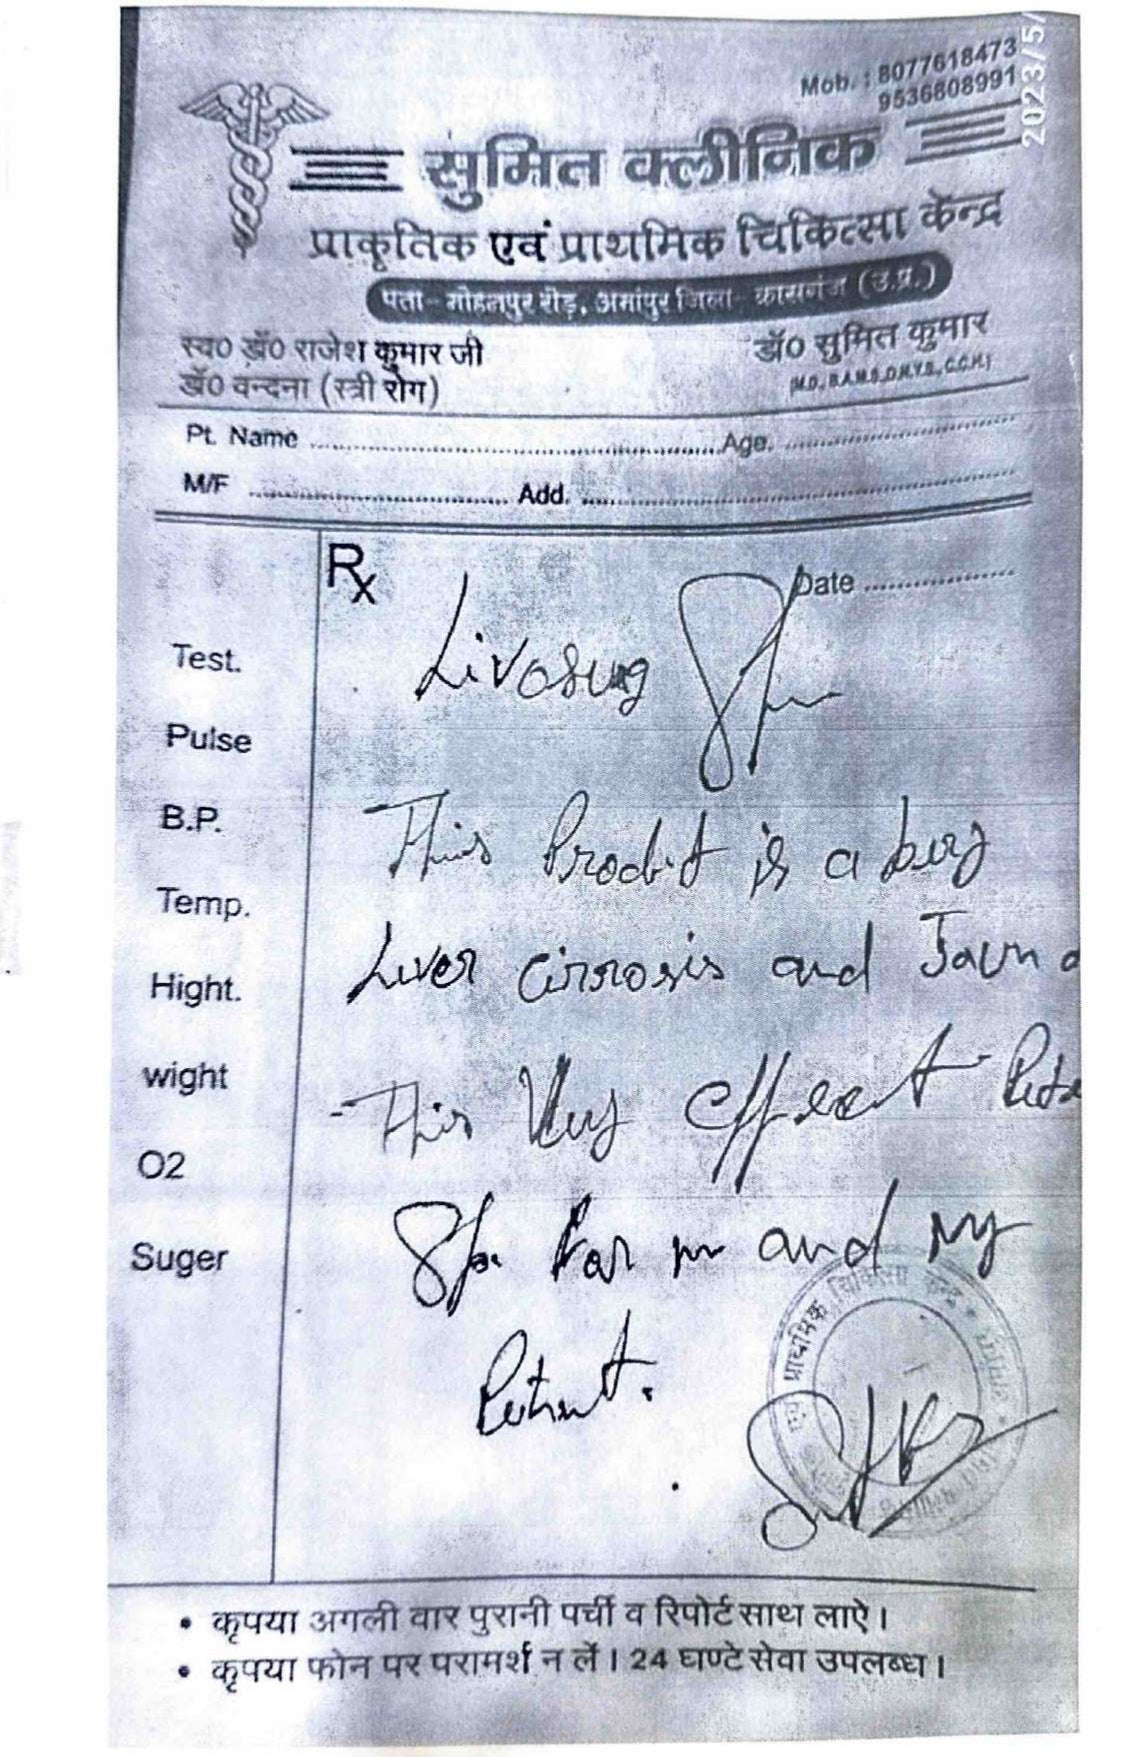 Mob. : 8077618473
9536808991
2023/5/
सुमित क्लीनिक
प्राकृतिक एवं प्राथमिक चिकित्सा केन्द्र
पता- मोहनपुर रोड़, अमांपुर जिला- कासगंज (उ.प्र.)
स्व0 डॉ0 राजेश कुमार जी
डॉ0 सुमित कुमार
डॉ0 वन्दना (स्त्री रोग)
(M.D., B.A.M.S, D.M.Y.S., C.C.H.)
Pt. Name ............ Age. ............
M/F ............ Add. ............
Rx
Date ............
Livosug
Test.
Pulse
This Prodit is a
B.P.
Temp.
Liver cirrosis and Jaun
Hight.
This Very effect
wight
O2
for and my
Suger
प्राथमिक चिकित्सा केन्द्र
• कृपया अगली वार पुरानी पर्ची व रिपोर्ट साथ लाऐ।
• कृपया फोन पर परामर्श न लें। 24 घण्टे सेवा उपलब्ध।